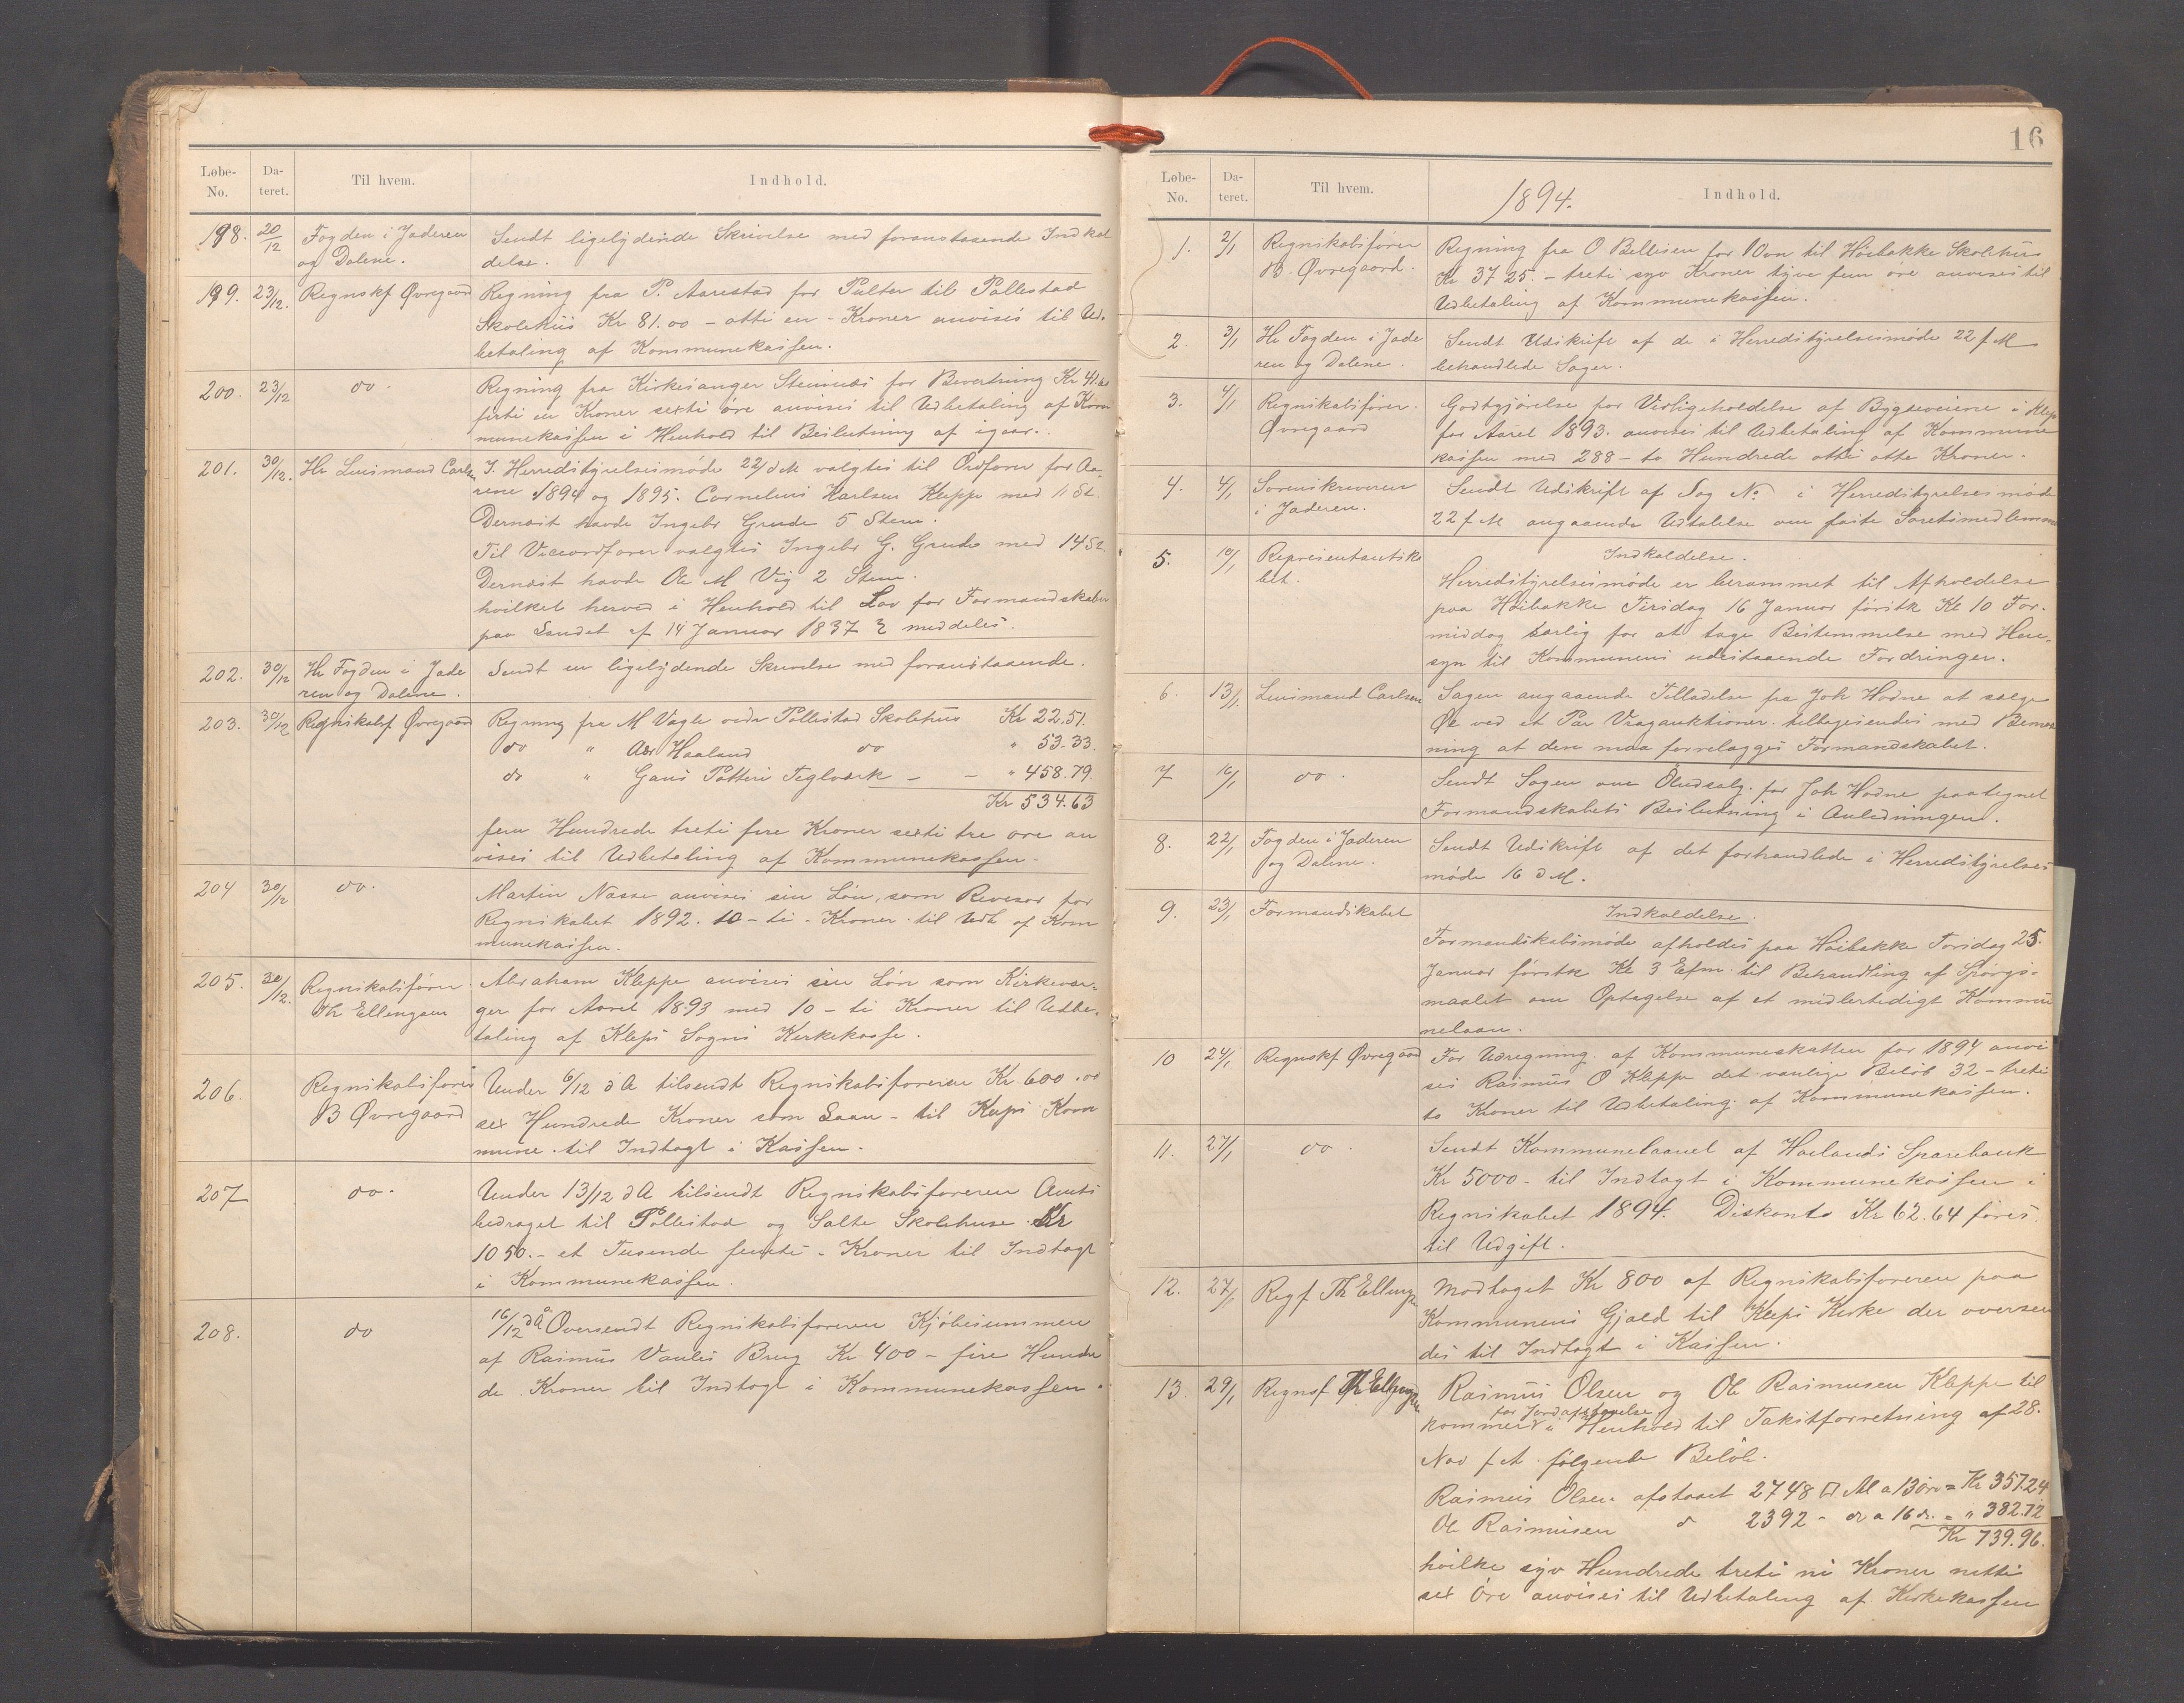 Løbe-No. Da-teret. Til hvem. Indhold.
198. 20/12 Fogden i Jæderen og Dalene. Sendt ligelydende Skrivelse med foranstaaende Indkal
delse.
199. 23/12. Regnskf Øvregaard Regning fra P. Aarestad for Pulter til Pollestad
Skolehus Kr 81.00 – otti en – Kroner anvises til Ud-
betaling af Kommunekassen.
200. 23/12 do. Regning fra Kirkesanger Steinnæs for Bevertning Kr 41.60
firti en Kroner sexti øre anvises til Udbetaling af Kom
munekassen i Henhold til Beslutning af igaar.
201. 30/12. Hr Lensmand Carlsen I. Herredstyrelsesmøde 22/ d M valgtes til Ordfører for Aa-
rene 1894 og 1895. Cornelius Karlsen Kleppe med 11 St.
Dernæst havde Ingebr Grude 5 Stem.
Til Viceordfører valgtes Ingebr G. Grude med 14 St.
Dernæst havde Ole M Vig 2 Stem.
hvilket herved i Henhold til Lov for Formandskaber
paa Landet af 14 Januar 1837 § meddeles.
202. 30/12 Hr Fogden i Jæde
ren og Dalene. Sendt en ligelydende Skrivelse med foranstaaende.
203. 30/12 Regnskabsf Øvregaard Regning fra M Vagle vedr Pollestad Skolehus Kr 22.51.
do " Abr Haaland do " 53.33.
do " Gans Potteri Teglværk – – " 458.79.
Kr 534.63
fem Hundrede treti fire Kroner sexti tre øre an
vises til Udbetaling af Kommunekassen.
204 30/12 do. Martin Næsse anvises sin Løn, som Revisor for
Regnskabet 1892. 10 – ti – Kroner til Udb af Kom
munekassen.
205. 30/12. Regnskabsfører
Th Ellingsen Abraham Kleppe anvises sin Løn som Kirkevær-
ger for Aaret 1893 med 10 – ti Kroner til Udbe-
taling af Kleps Sogns Kirkekasse.
206. Regnskabsfører
B Øvregaard Under 6/12 d A tilsendt Regnskabsføreren Kr 600.00
sex Hundrede Kroner som Laan – til Kleps Kom
mune til Indtægt i Kassen.
207 do. Under 13/12 d A tilsendt Regnskabsføreren Amts
bedraget til Pollestad og Salte Skolehuse Kr
1050. – et Tusende femti – Kroner til Indtægt
i Kommunekassen.
208. do 16/12 d A Oversendt Regnskabsføreren Kjøbesummen
af Rasmus Vaules Brug Kr 400 – fire Hundre
de Kroner til Indtægt i Kommunekassen.
16
Løbe-No. Da-teret. Til hvem. 1894. Indhold.
1. 2/1 Regnskabsfører
B. Øvregaard. Regning fra O Bellesen for Ovn til Høibakke Skolehus
Kr 37 25. – treti syv Kroner tyve fem øre anvises til
Udbetaling af Kommunekassen.
2. 3/1 Hr Fogden i Jæde
ren og Dalene. Sendt Udskrift af de i Herredstyrelsesmøde 22 f M
behandlede Sager.
3. 4/1 Regnskabsfører.
Øvregaard Godtgjørelse for Vedligeholdelse af Bygdeveiene i Klep
for Aaret 1893. anvises til Udbetaling af Kommune
kassen med 288 – to Hundrede otti otte Kroner.
4. 4/1 Sorenskriveren
i Jæderen. Sendt Udskrift af Sag No i Herredstyrelsesmøde
22 f M angaaende Udtalelse om faste Soretsmedlemmer
5. 10/1 Repræsentantska
bet. Indkaldelse.
Herredstyrelsesmøde er berammet til Afholdelse
paa Høibakke Tirsdag 16 Januar førstk Kl 10 For-
middag særlig for at tage Bestemmelse med Hen-
syn til Kommunens udestaaende Fordringer.
6. 13/1 Lensmand Carlsen Sagen angaaende Tilladelse fra Joh Hodne at sælge
Øl ved et Par Vragauktioner tilbagesendes med Bemær
ning at den maa forrelægges Formandskabet.
7 16/1 do. Sendt Sagen om Øludsalg for Joh Hodne paategnet
Formandskabets Beslutning i Anledningen.
8. 22/1 Fogden i Jæderen
og Dalene. Sendt Udskrift af det forhandlede i Herredstyrelses
møde 16 d M.
9. 23/1 Formandskabet Indkaldelse.
Formandskabsmøde afholdes paa Høibakke Torsdag 25.
Januar førstk Kl 3 Efm. til Behandling af Spørgs-
maalet om Optagelse af et midlertidigt Kommu
nelaan.
10 24/1 Regnskf Øvregaard For Udregning af Kommuneskatten for 1894 anvi
ses Rasmus O Kleppe det vanlige Beløb 32 – treti
to Kroner til Udbetaling af Kommunekassen.
11. 27/1 do. Sendt Kommunelaanet af Haalands Sparebank
Kr 5000 – til Indtægt i Kommunekassen i
Regnskabet 1894. Diskonto Kr 62.64 føres
til Udgift.
12. 27/1 Regf Th Ellingsen Modtaget Kr 800 af Regnskabsføreren paa
Kommunens Gjæld til Kleps Kirke der oversen
des til Indtægt i Kassen.
13. 29/1 Regnsf Th Ellingsen Rasmus Olsen og Ole Rasmusen Kleppe til
for Jordafstaaelse
kommer i Henhold til Takstforretning af 28.
Nov f A følgende Beløb.
Rasmus Olsen afstaaet 2748 □ Al a 13 øre = Kr 357.24
Ole Rasmusen d 2392 – do a 16 do. = " 382.72
Kr 739.96.
hvilke syv Hundrede treti ni Kroner nitti
sex Øre anvises til Udbetaling af Kirkekassen